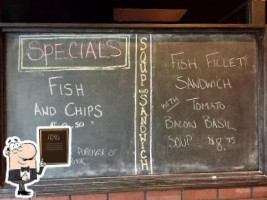 SPECIALS
FISH
AND CHIPS
PURCHASE OF
SOUP AND SANDWICH
FISH FILLET
SANDWICH
WITH TOMATO
BACON BASIL
SOUP